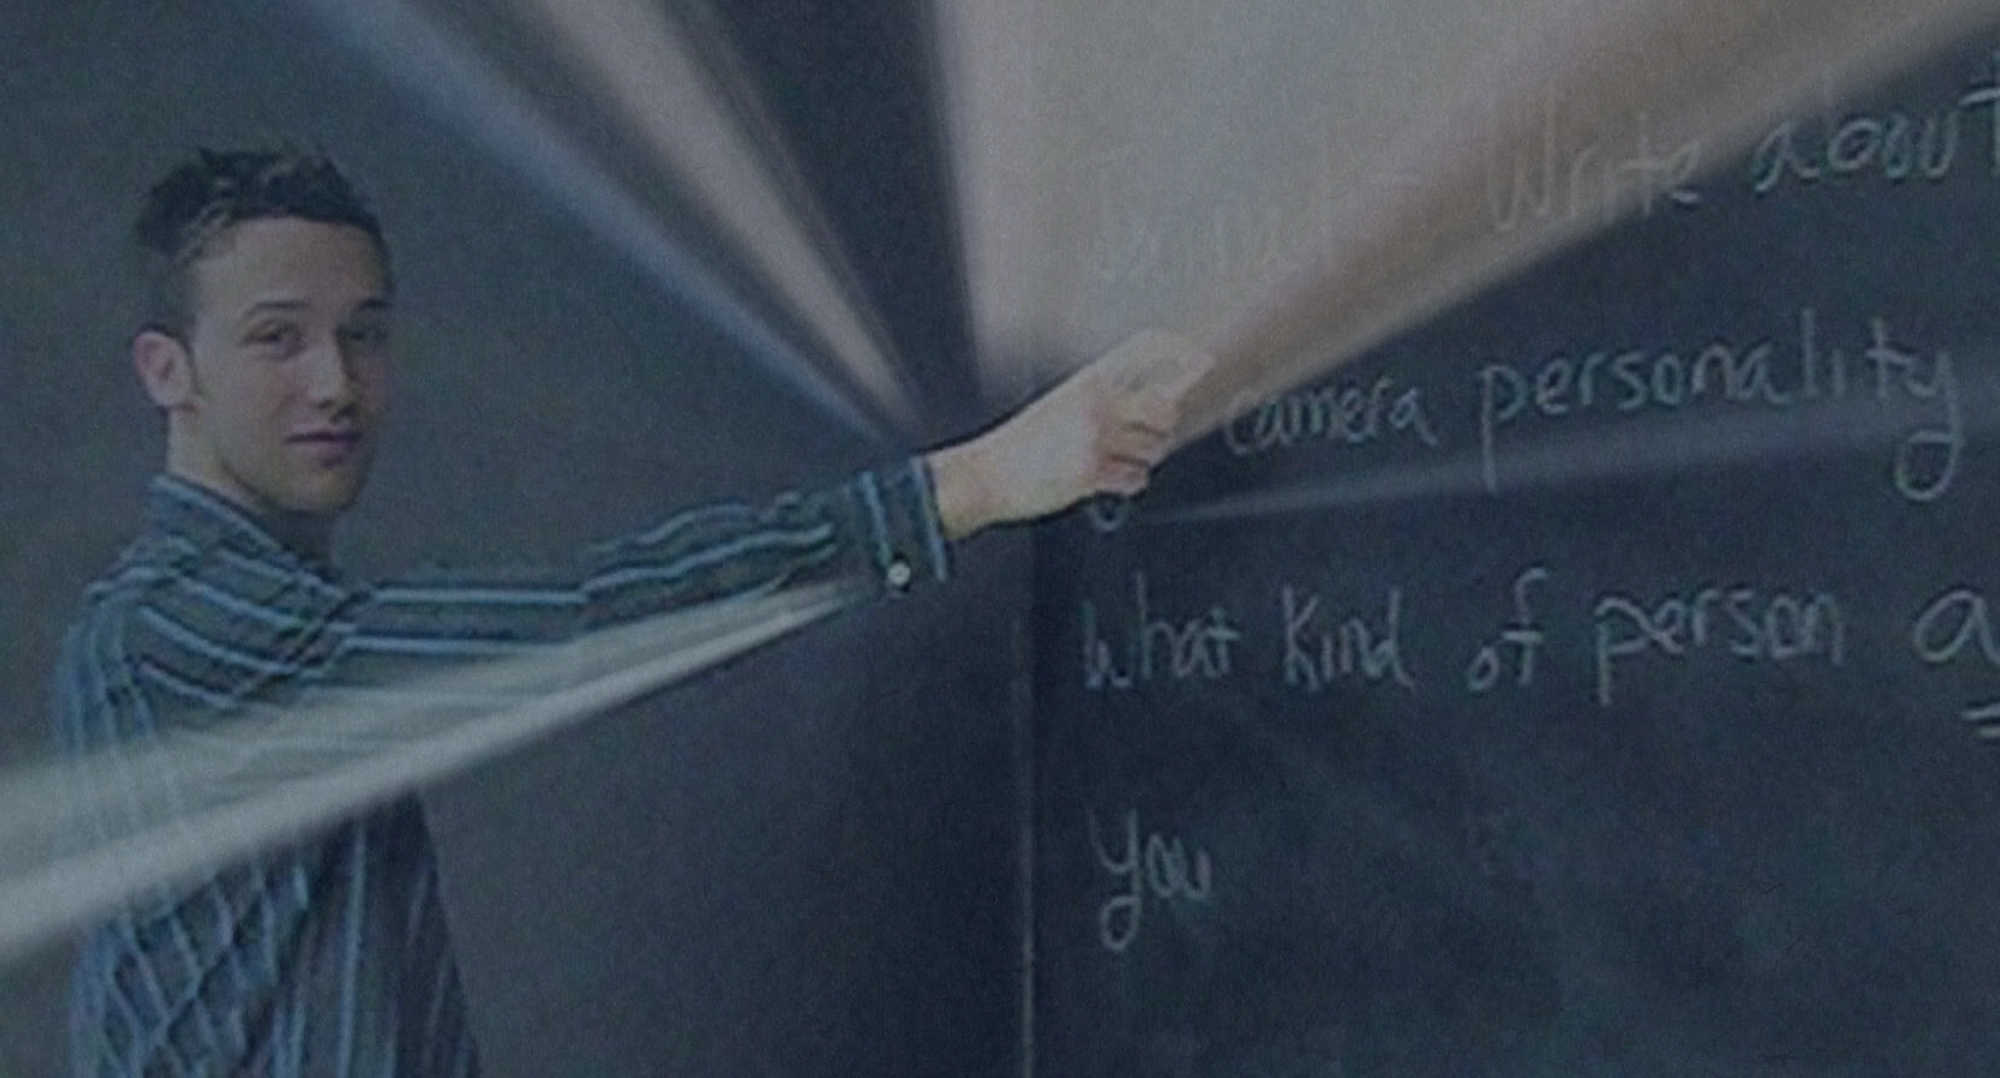 Write about
camera personality
what kind of person a
you